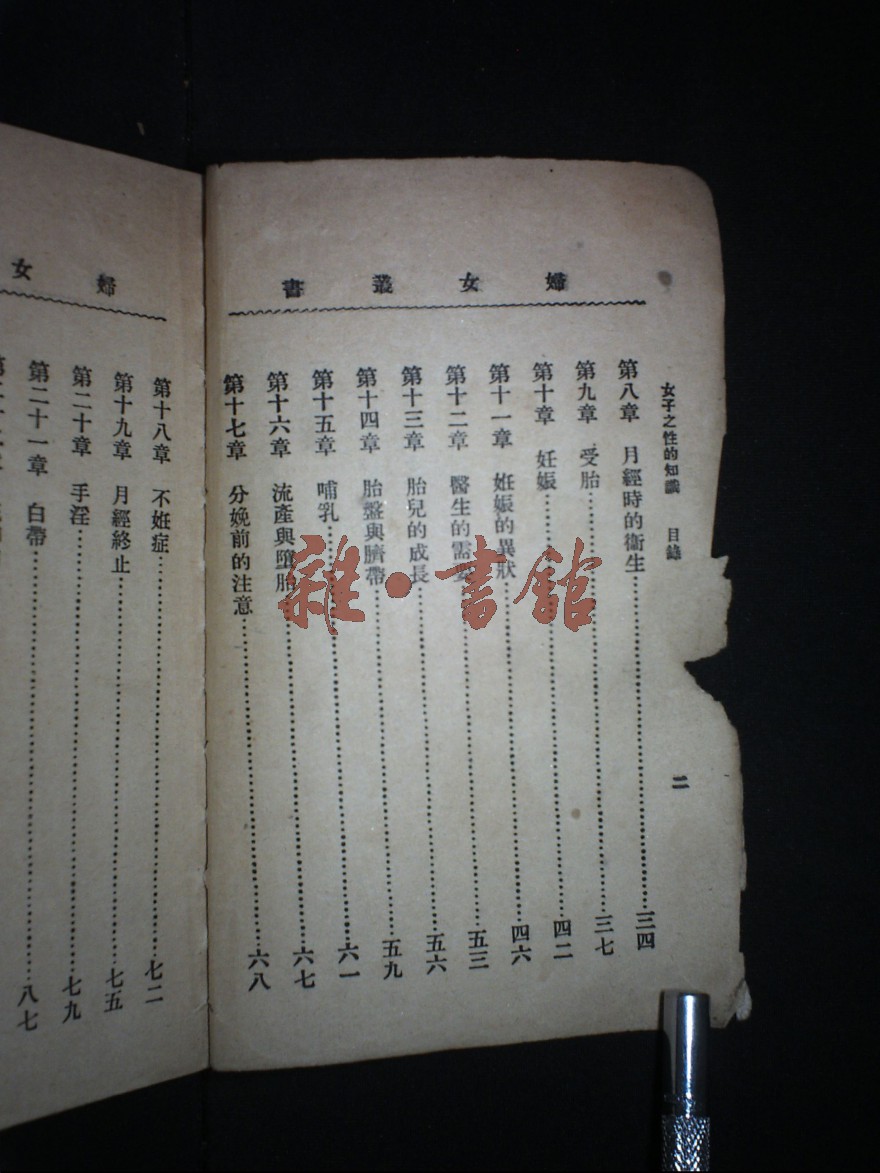 婦女叢書
女子之性的知識 目錄 二
第八章 月經時的衞生……三四
第九章 受胎……三七
第十章 妊娠……四二
第十一章 姙娠的異狀……四六
第十二章 醫生的需要……五三
第十三章 胎兒的成長……五六
第十四章 胎盤與臍帶……五九
第十五章 哺乳……六一
第十六章 流產與墮胎……六七
第十七章 分娩前的注意……六八
婦女
第十八章 不姙症……七二
第十九章 月經終止……七五
第二十章 手淫……七九
第二十一章 白帶……八七
雜·書館